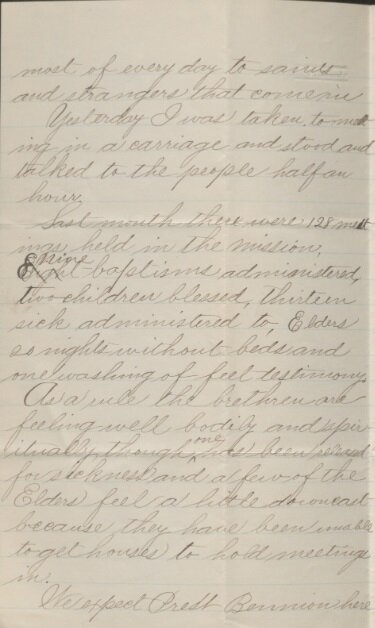 most of every day to saints
and strangers that come in
Yesterday I was taken to meet
ing in a carriage and stood and
talked to the people half an
hour.
Last month there were 128 meet
ings held in the mission,
Eight nine baptisms administered,
two children blessed, thirteen
sick administered to, Elders
20 nights without beds and
one washing of feet testimony.
As a rule the brethren are
feeling well bodily and spir
itually, though one has been released
for sickness and a few of the
Elders feel a little downcast
because they have been unable
to get houses to hold meetings
in.
We expect Prest Bennion here